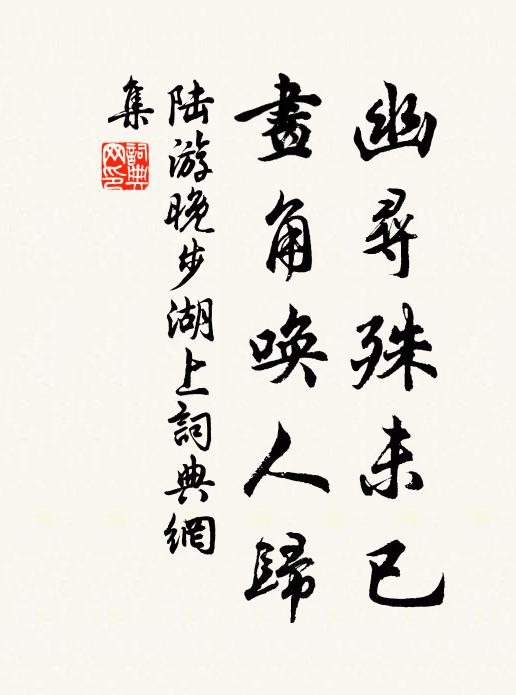 幽尋殊未已
畫角喚人歸
陆游晚步湖上詞典網
集
詞典
网印